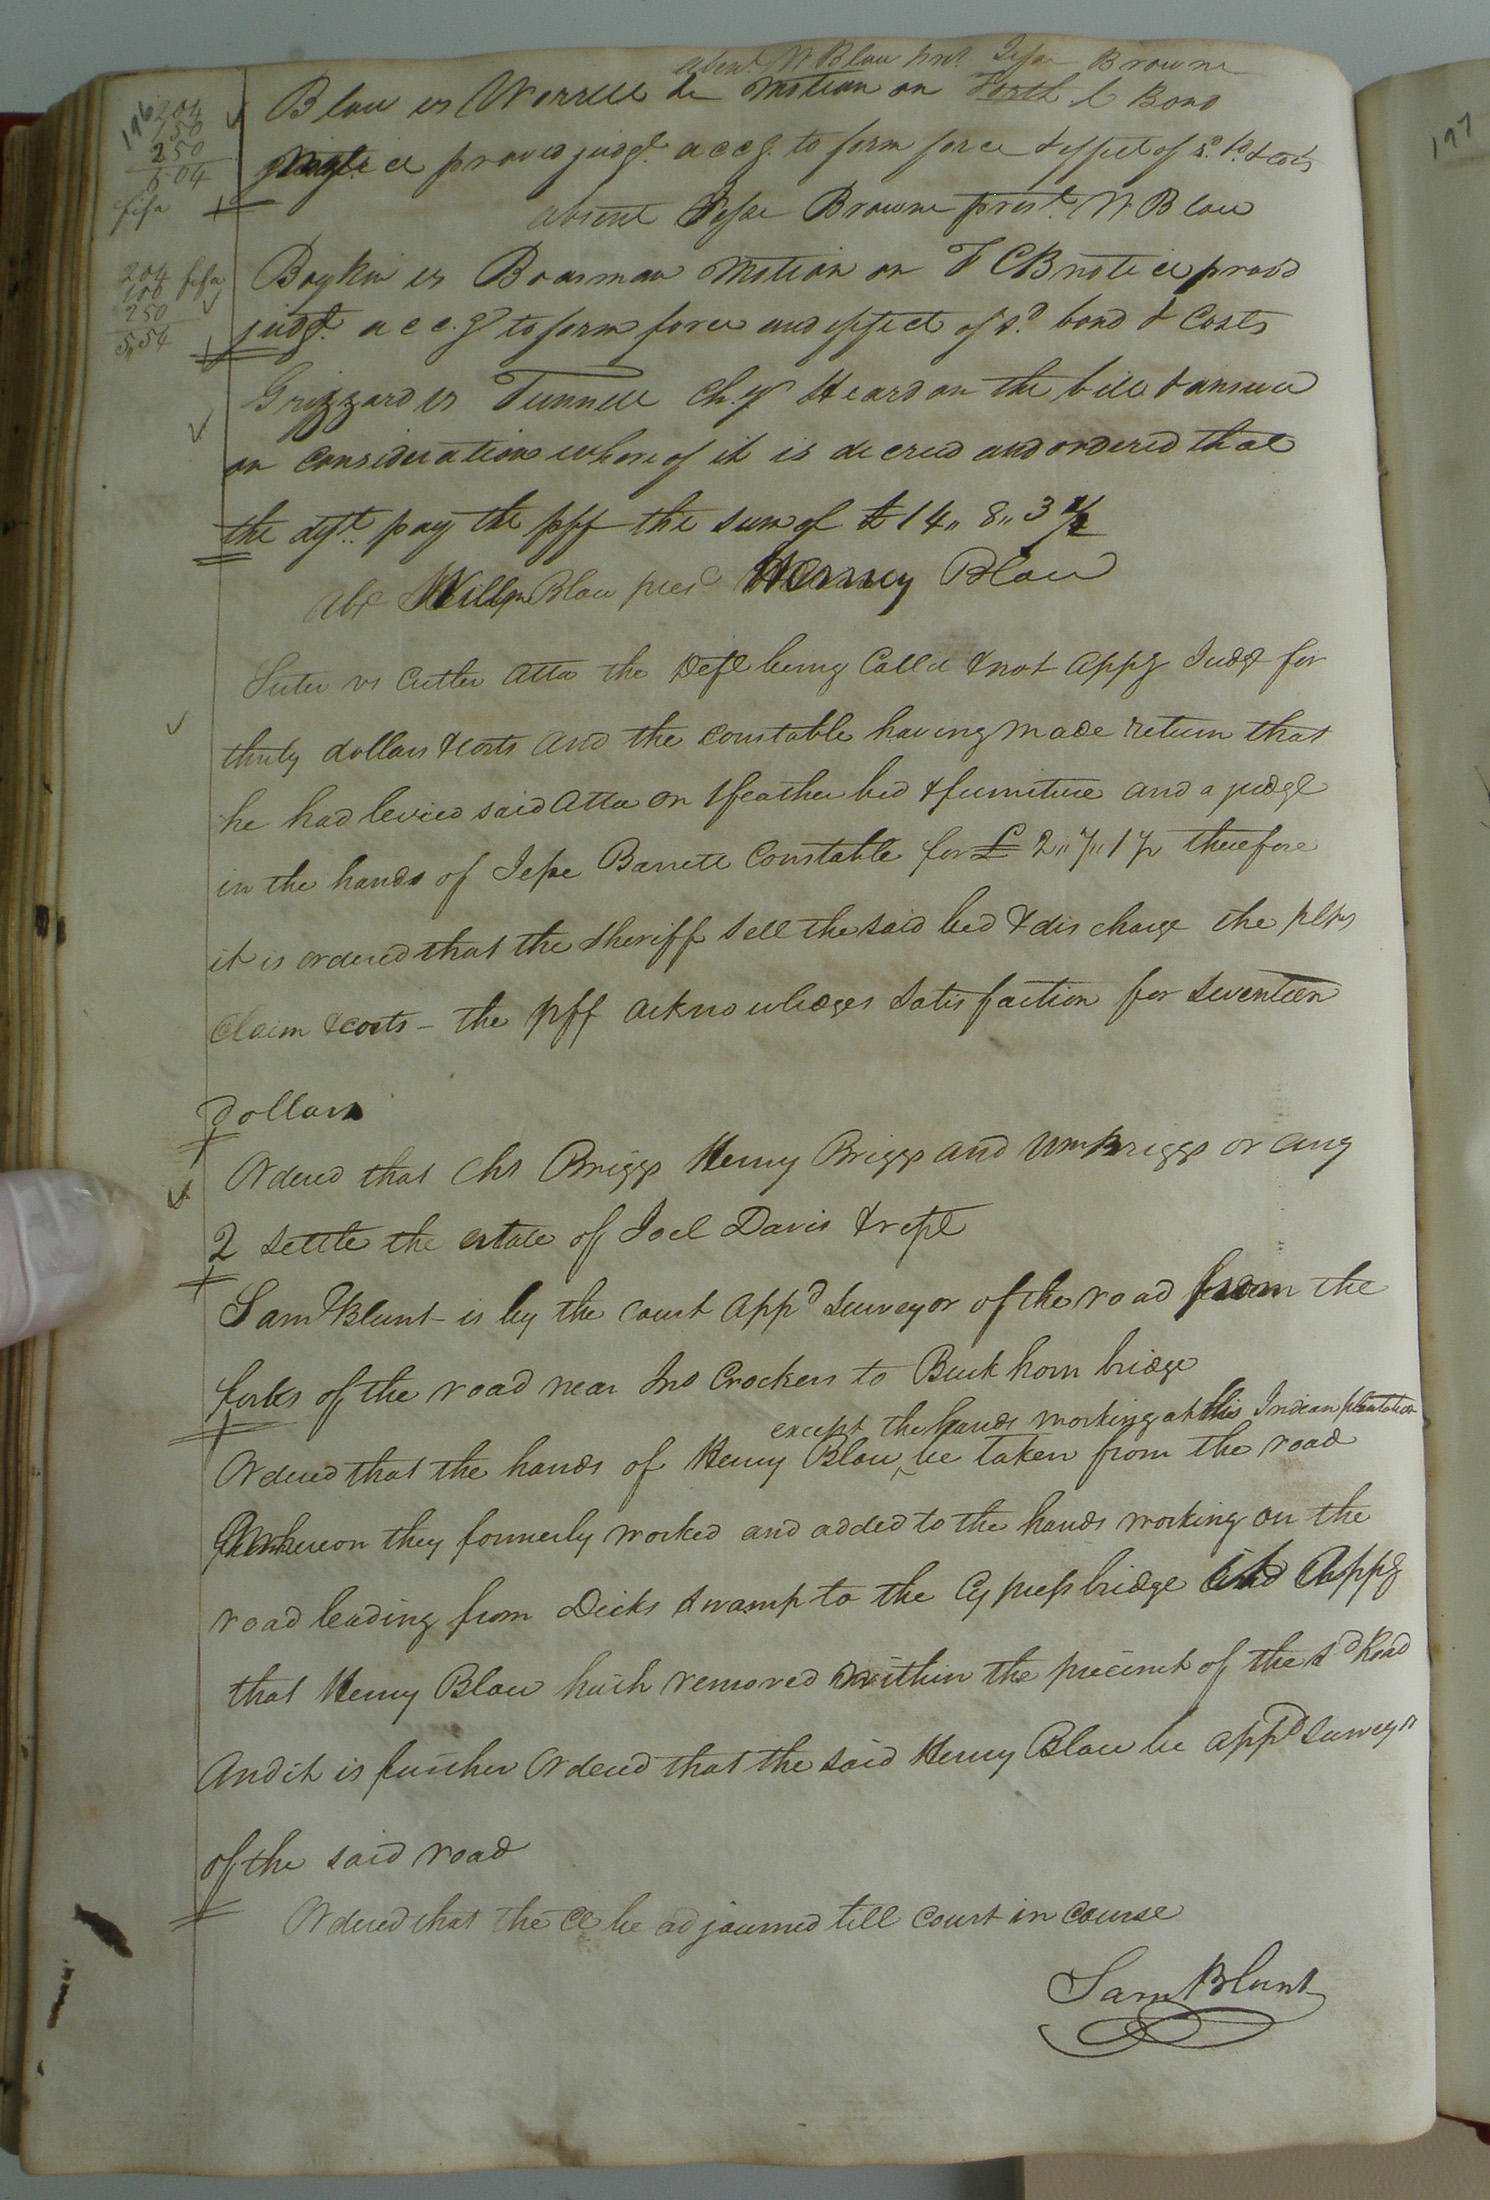 196
197
absent W Blow prest Jesse Browne
Blow vs Worrell &c motion on Forth C Bond
204
150
250
6 04
fifa
notice proved judgt accg to form force & effect of sd bd & costs
absent Jesse Browne prest W Blow
Boykin vs Boasman Motion on F C B notice provd
204 fifa
100
250
5,54
judgt accg to form force and effect of sd bond & Costs
Grizzard vs Tunnell Chy Heard on the bill & answer
on consideration whereof it is decreed and ordered that
the deft pay the pff the sum of £14,, 8,, 3 1/2
Abt Willm Blow prest Henry Blow
Suter vs Cutler Atta the Deft being Calld & not Appg Judgt for
thirty dollars & costs And the Constable having made return that
he had levied said Atta on 1 feather bed & furniture and a judgt
in the hands of Jesse Barrett Constable for £ 2,,7,,1 1/2 therefore
it is ordered that the Sheriff sell the said bed & discharge the pltfs
Claim & costs - the pff acknowledges satisfaction for seventeen
dollars
Ordered that Chs Briggs Henry Briggs and Wm Briggs or any
2 settle the estate of Joel Davis & rept
Saml Blunt is by the Court Appd Surveyor of the road from the
forks of the road near Jno Crockers to Buckhorn bridge
except the hands working at this Indian plantation
Ordered that the hands of Henry Blow be taken from the road
whereon they formerly worked and added to the hands working on the
road leading from Dicks swamp to the Cypress bridge it Appg
that Henry Blow hath removed within the precinct of the sd Road
And it is further Ordered that the said Henry Blow be appd Surveyr
of the said road
Ordered that the Ct be adjourned till Court in Course
Sam Blunt